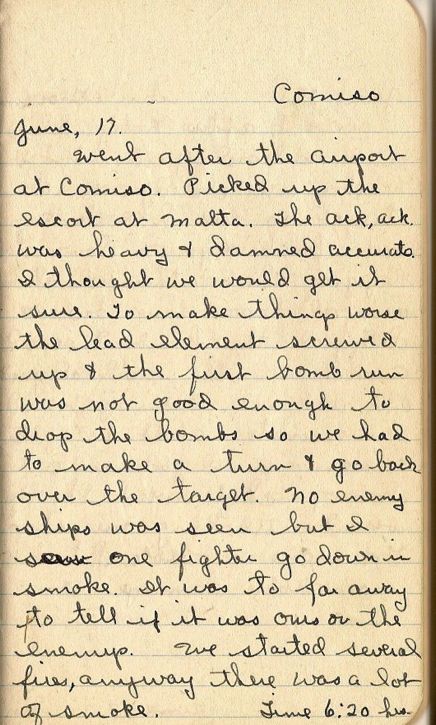 Comiso
June, 17.
Went after the airport
at Comiso. Picked up the
escort at Malta. The ack, ack.
was heavy & damned accurate.
I thought we would get it
sure. To make things worse
the lead element screwed
up & the first bomb run
was not good enough to
drop the bombs so we had
to make a turn & go back
over the target. No enemy
ships was seen but I
saw one fighter go down in
smoke. It was to far away
to tell if it was ours or the
enemys. We started several
fires, anyway there was a lot
of smoke. Time 6:20 hrs.